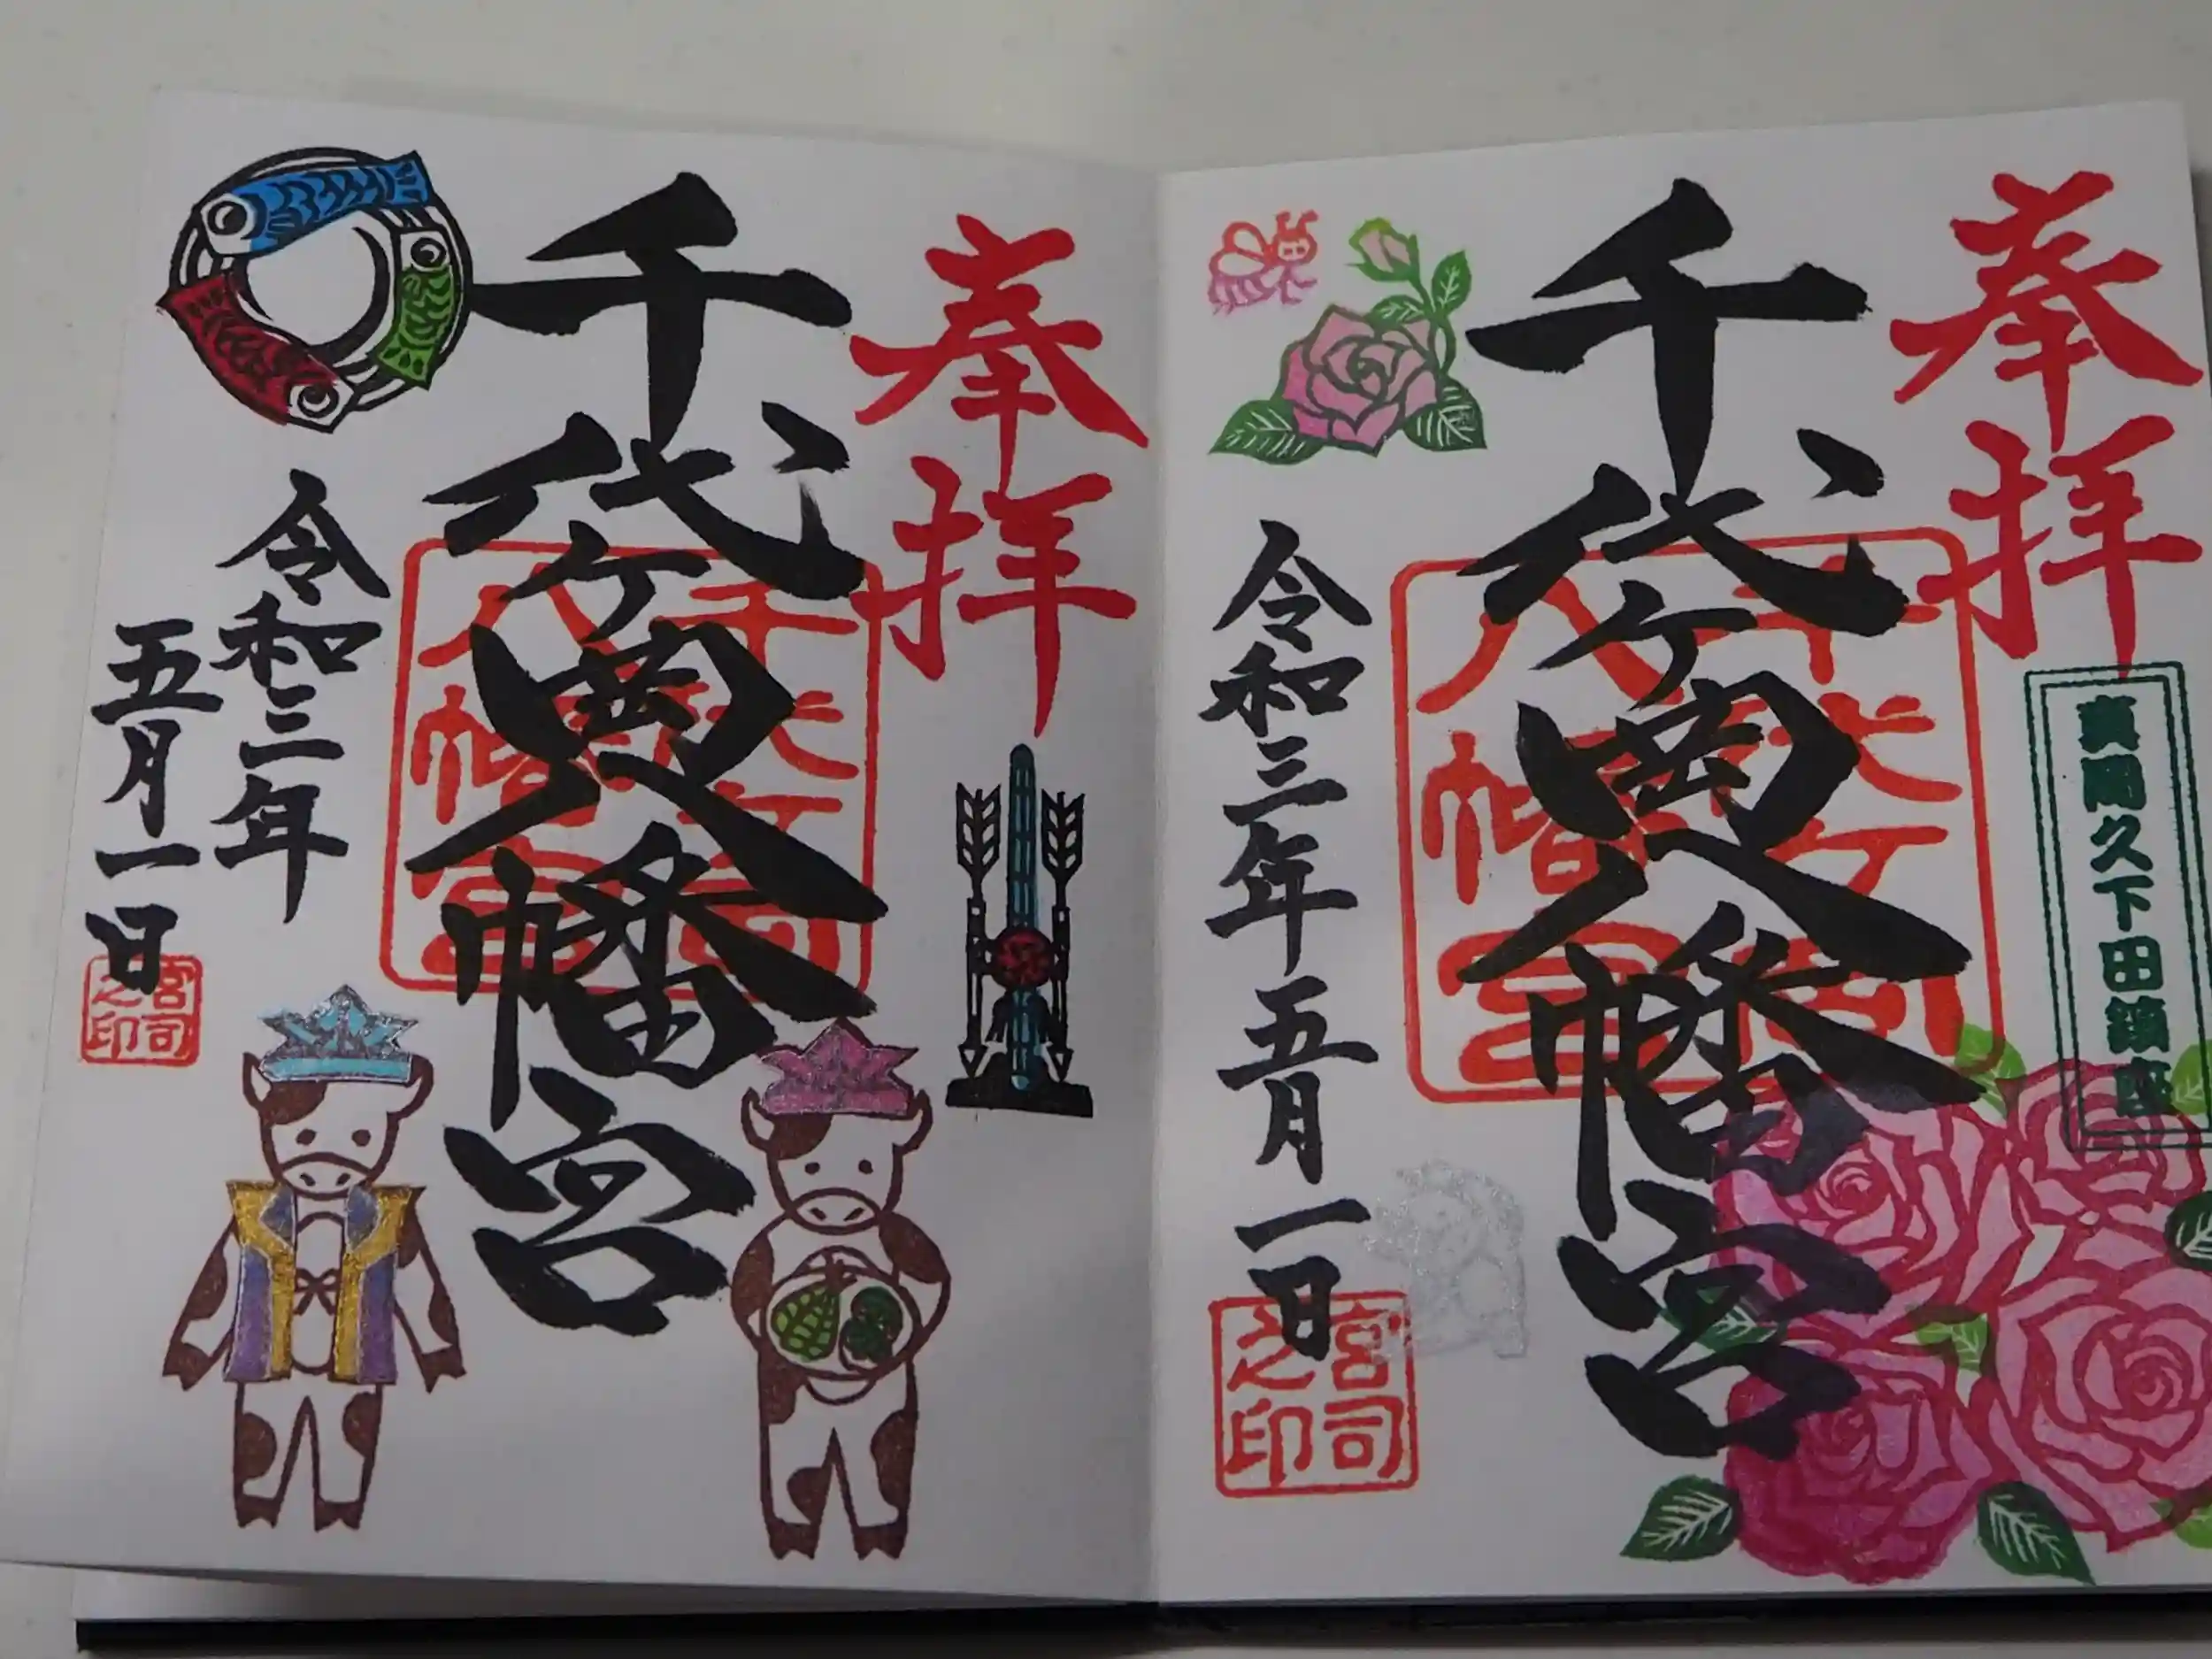 奉拝
真岡久下田鎮座
千代ヶ岡八幡宮
千代ヶ岡八幡宮
令和三年五月一日
宮司之印
奉拝
千代ヶ岡八幡宮
千代ヶ岡八幡宮
令和三年
五月一日
宮司之印